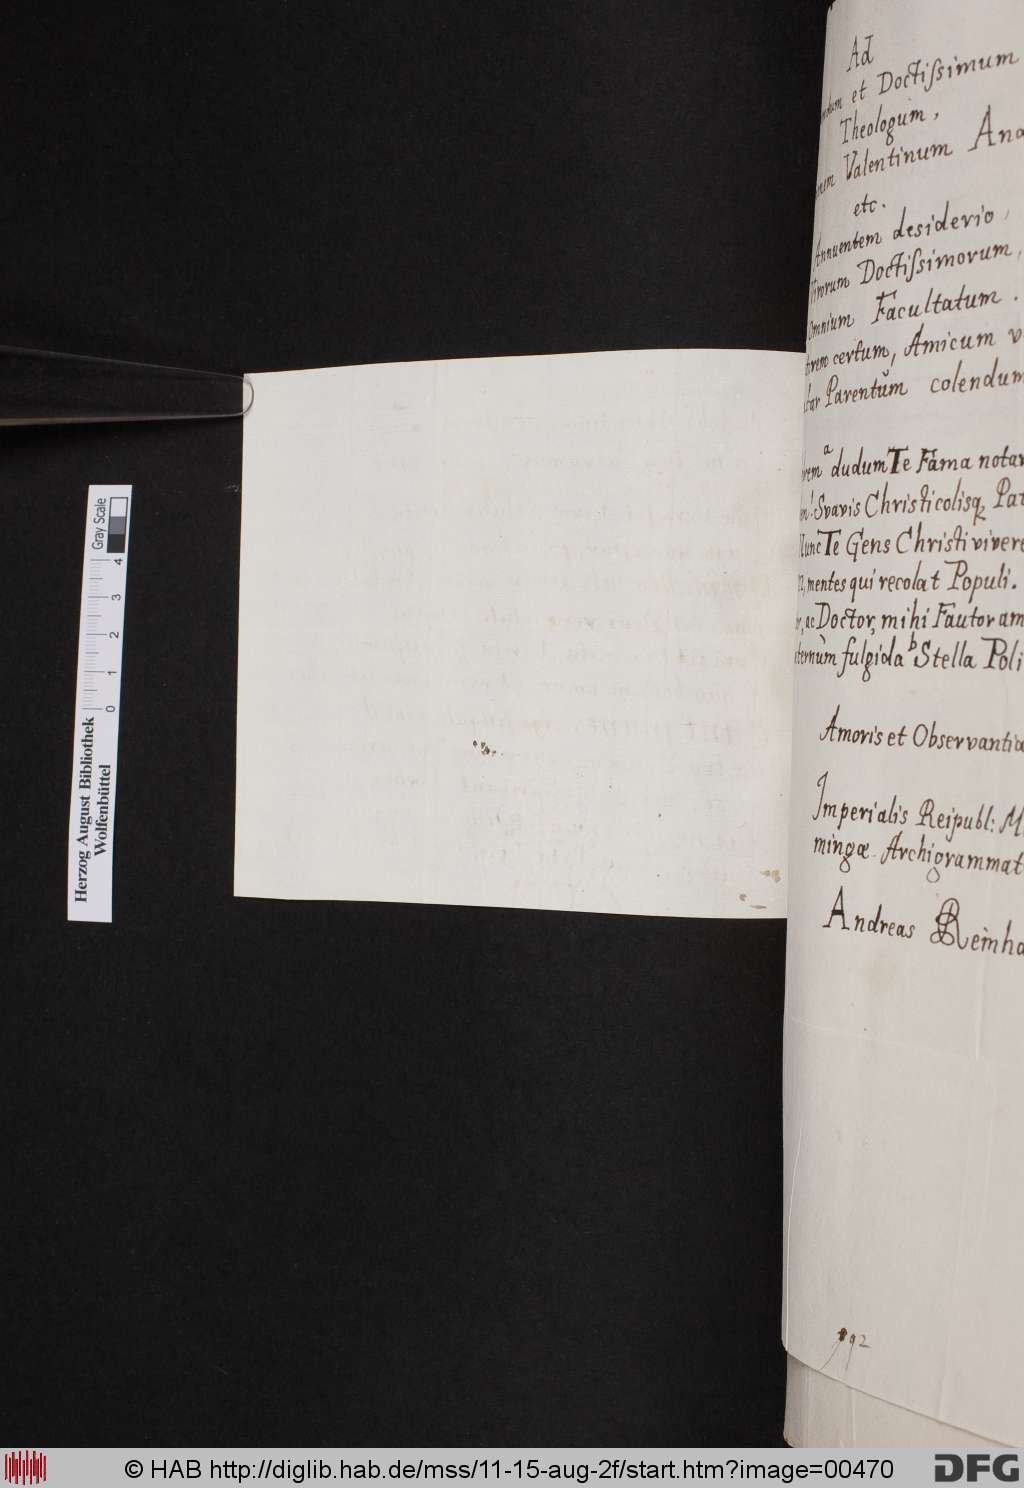 Ad
et Doctiſsimum
Theologum,
Valentinum And
etc.
Annuentem desiderio,
Virorum Doctiſsimorum,
omnium Facultatum.
certum, Amicum v
Parentŭm colendum
a dudum Te Fama notav
Svavis Christicolisq Pat
Nunc Te Gens Christi vivere
mentes qui recolat Populi.
ac Doctor, mihi Fautor am
fulgida b Stella Poli
Amoris et Observantiæ
Imperialis Reipubl: M
mingæ Archigrammat
Andreas Reinha
192
Gray Scale
0 1 2 3 4
Herzog August Bibliothek
Wolfenbüttel
© HAB http://diglib.hab.de/mss/11-15-aug-2f/start.htm?image=00470
DFG